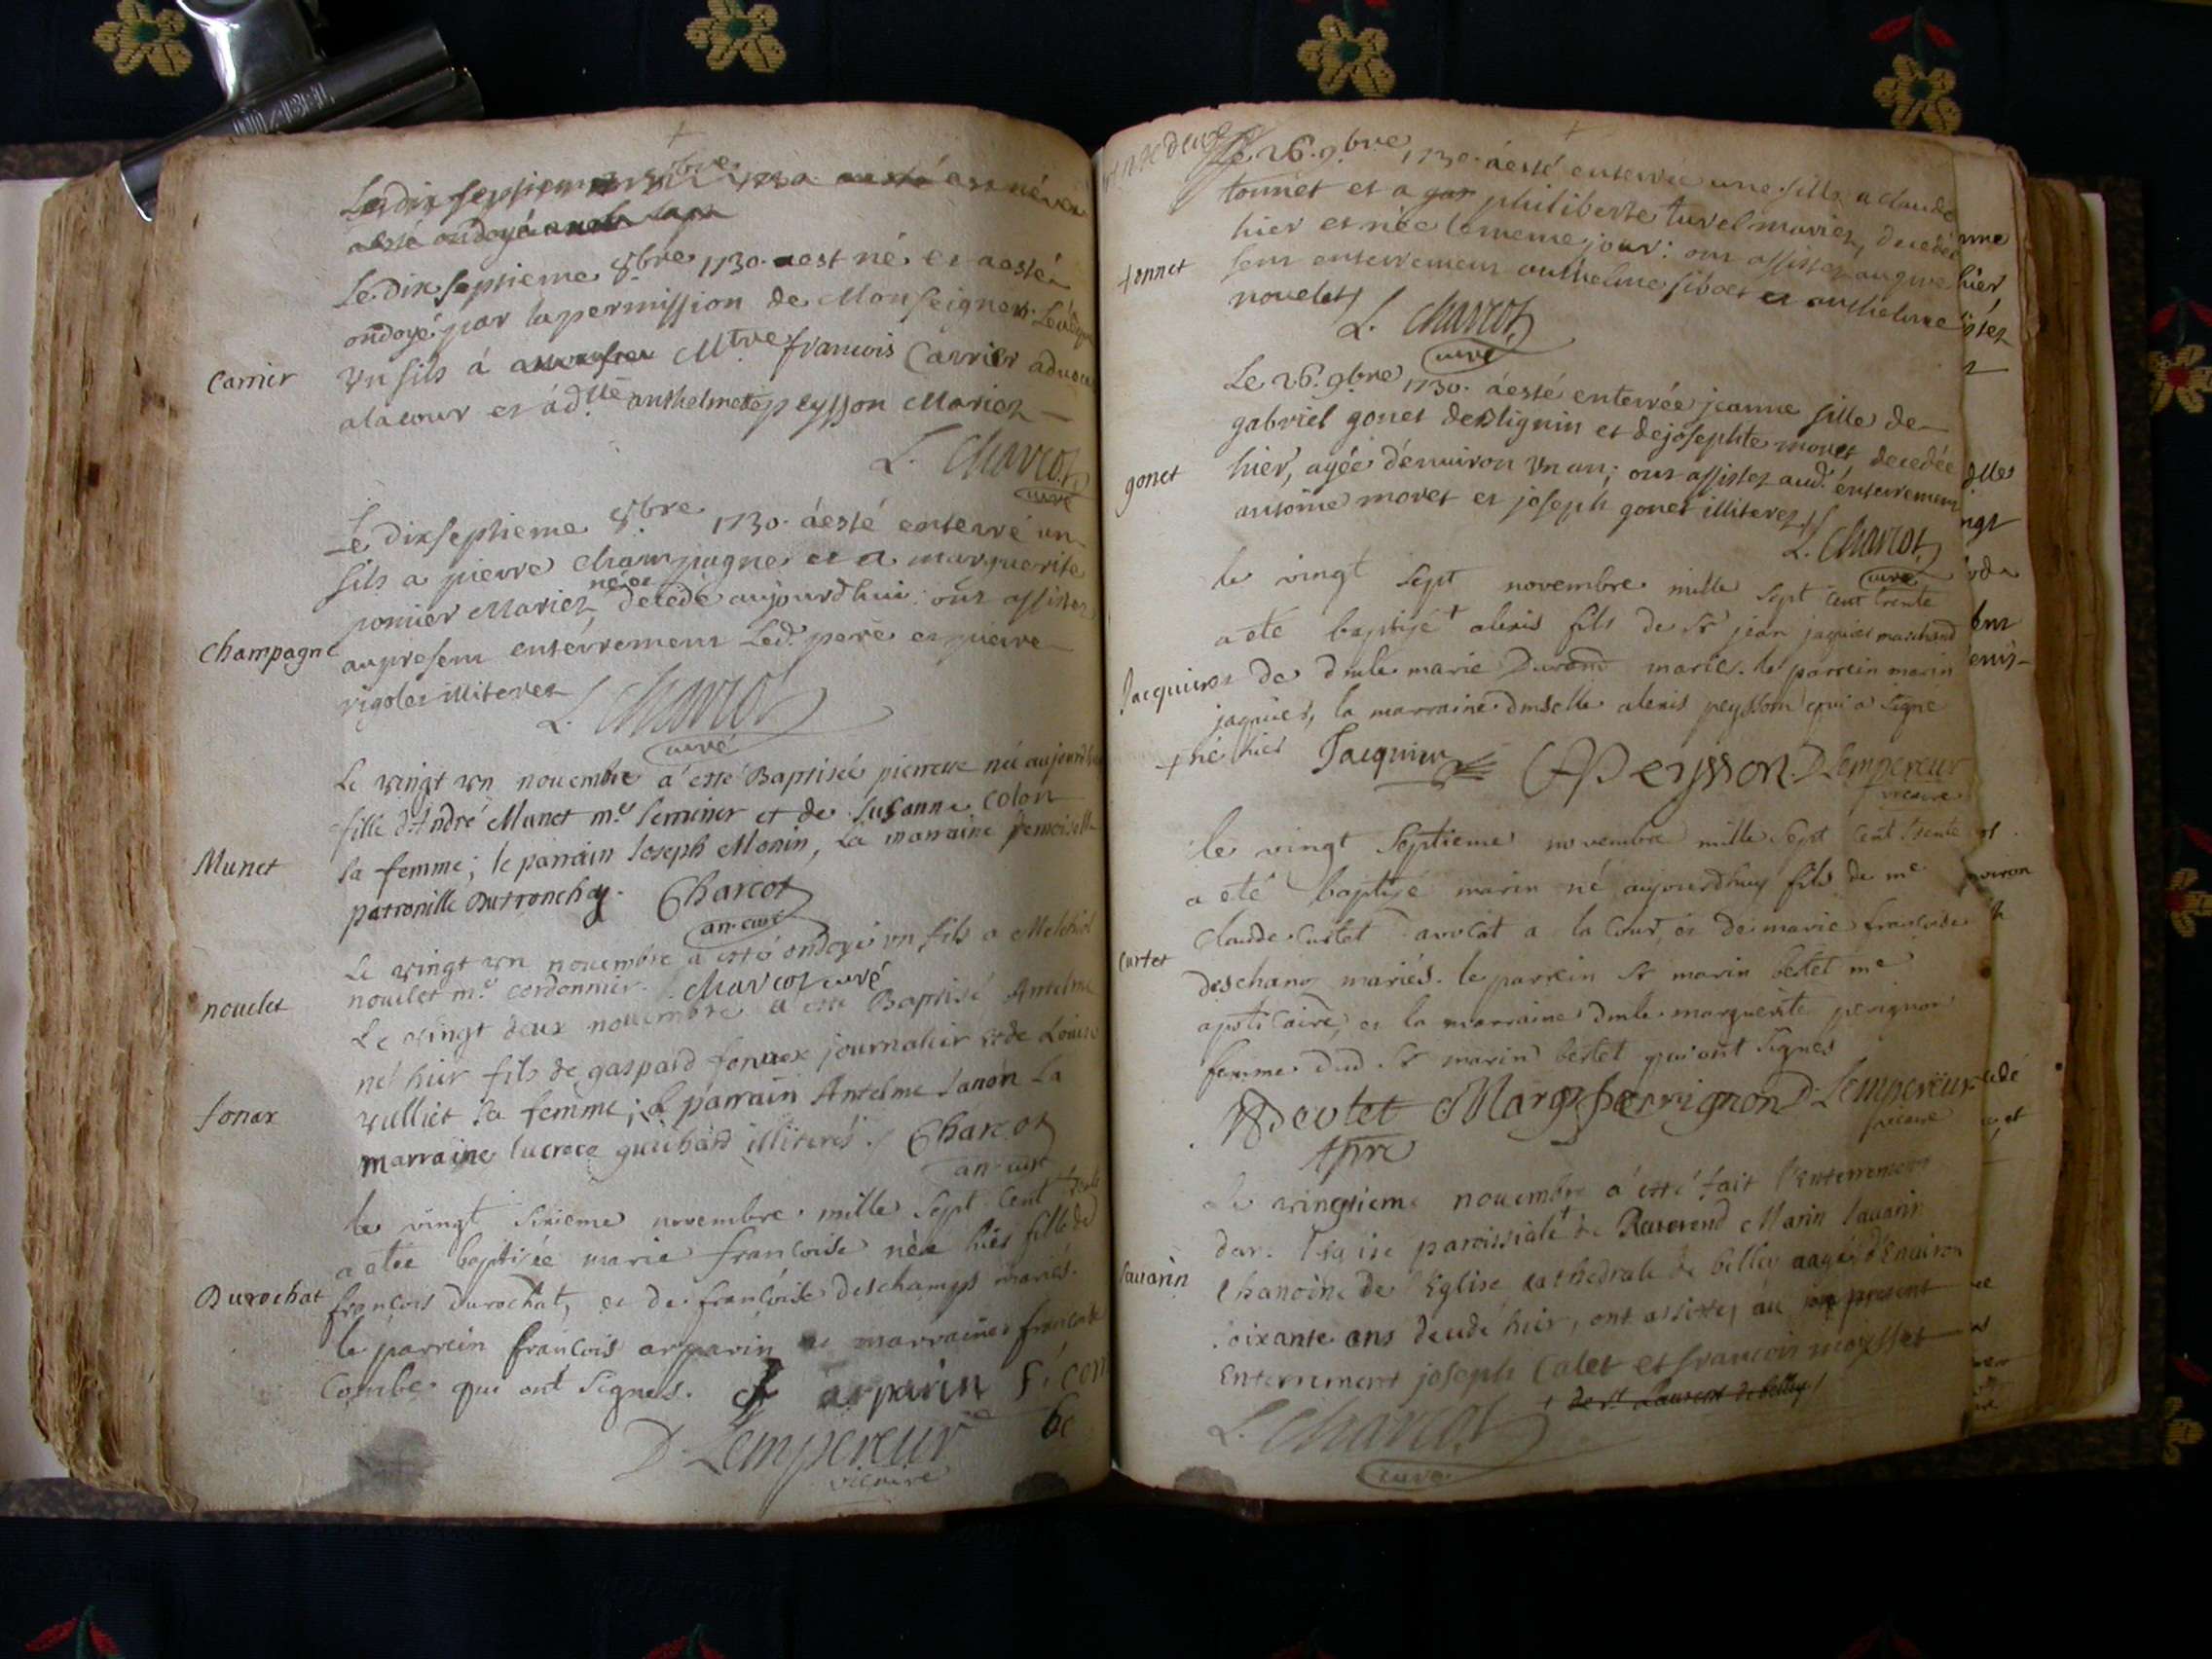 Le dix septieme 8bre 1730 a esté est né et
a esté ondoyé
Le dix septieme 8bre 1730. a est né et a esté
ondoyé par la permission de Monseigneur L'évêque
Carrier
Vn fils á Mtre francois Carrier advocat
a la cour et á dlle anthelmette peysson Mariez
L. Charcot
curé
Le dixseptieme 8bre 1730. á esté enterré un
fils a pierre Champagne et a marguerite
né et
ponier Mariez, decedé aujourdhui: ont assistez
Champagne
au present entérrement Led. pere et pierre
rigolet illiterez
L. Charcot
curé
Le vingt vn nouembre a esté Baptisée pierrette née aujourdhuy
fille d'André Munet m.e et de Susanne Colon
Munet
sa femme; le parrain Joseph Monin, La marraine Demoiselle
petronille Dutronchay. Charcot
an. curé
Le vingt vn nouembre a esté ondoyé vn fils a Melchiol
nouelet
nouelet m.e cordonnier. Charcot curé
Le vingt deux nouembre a esté Baptisé Antelme
né hier fils de gaspard fonax journalier et de Louise
fonax
vulliet sa femme; le parrain Antelme Janon La
marraine lucrece guichard illiterés. / Charcot
an. curé
le vingt sixieme novembre mille sept cent trente
a etée baptisée marie francoise née hier fille de
Durochat
francois durochat, et de francoise deschamps mariés.
le parrein francois arparin et marraine francoise
Combe qui ont signés. f arparin f. com
be
D. Lempereur
vicaire
Le 26. 9bre 1730. á esté enterrée une fille a claude
tonnet et a philiberte turel mariez, decedée
hier et née le meme jour: ont assistez au pre
tonnet
sent enterrement anthelme siboet et anthelme
nouelet /
L. Charcot
curé
Le 26. 9bre 1730. á esté enterrée jeanne fille de
gabriel gonet de Blignin et de josephte moret decedée
gonet
hier, agée d'environ Vn an; ont assistez aud. énterrement
antoine moret et joseph gonet illiterez. //
L. Charcot
curé
le vingt sept novembre mille sept cent trente
a eté baptisé + alexis fils de Sr jean jaquier marchand
Jacquier
et de dmle marie Durand mariés. le parrein marin
jaquier, la marraine dmselle alexis peysson qui a signé
+ né hier Jacquier Peysson D. Lempereur
vicaire
le vingt septieme novembre mille sept cent trente
a eté baptisé marin né aujourdhuy fils de me
claude curtet avocat a la cour, et de marie francoise
curtet
deschamp mariés. le parrein Sr marin bertet me
apoticaire, et la marraine dmle marguerite perignon
femme dud. Sr marin bertet qui ont signés
Marg. perrignon D. Lempereur
vicaire
Le vingtieme nouembre a esté fait l'enterrement
dans l'Eglise paroissiale + de Reverend Marin Sauarin
Sauarin
Chanoine de l'Eglise cathedrale de belley aagé d'Enuiron
soixante ans decedé hier, ont assistez au present
Enterrement joseph Calet et francois moisset
+ de St Laurent de belley /
L. Charcot
curé